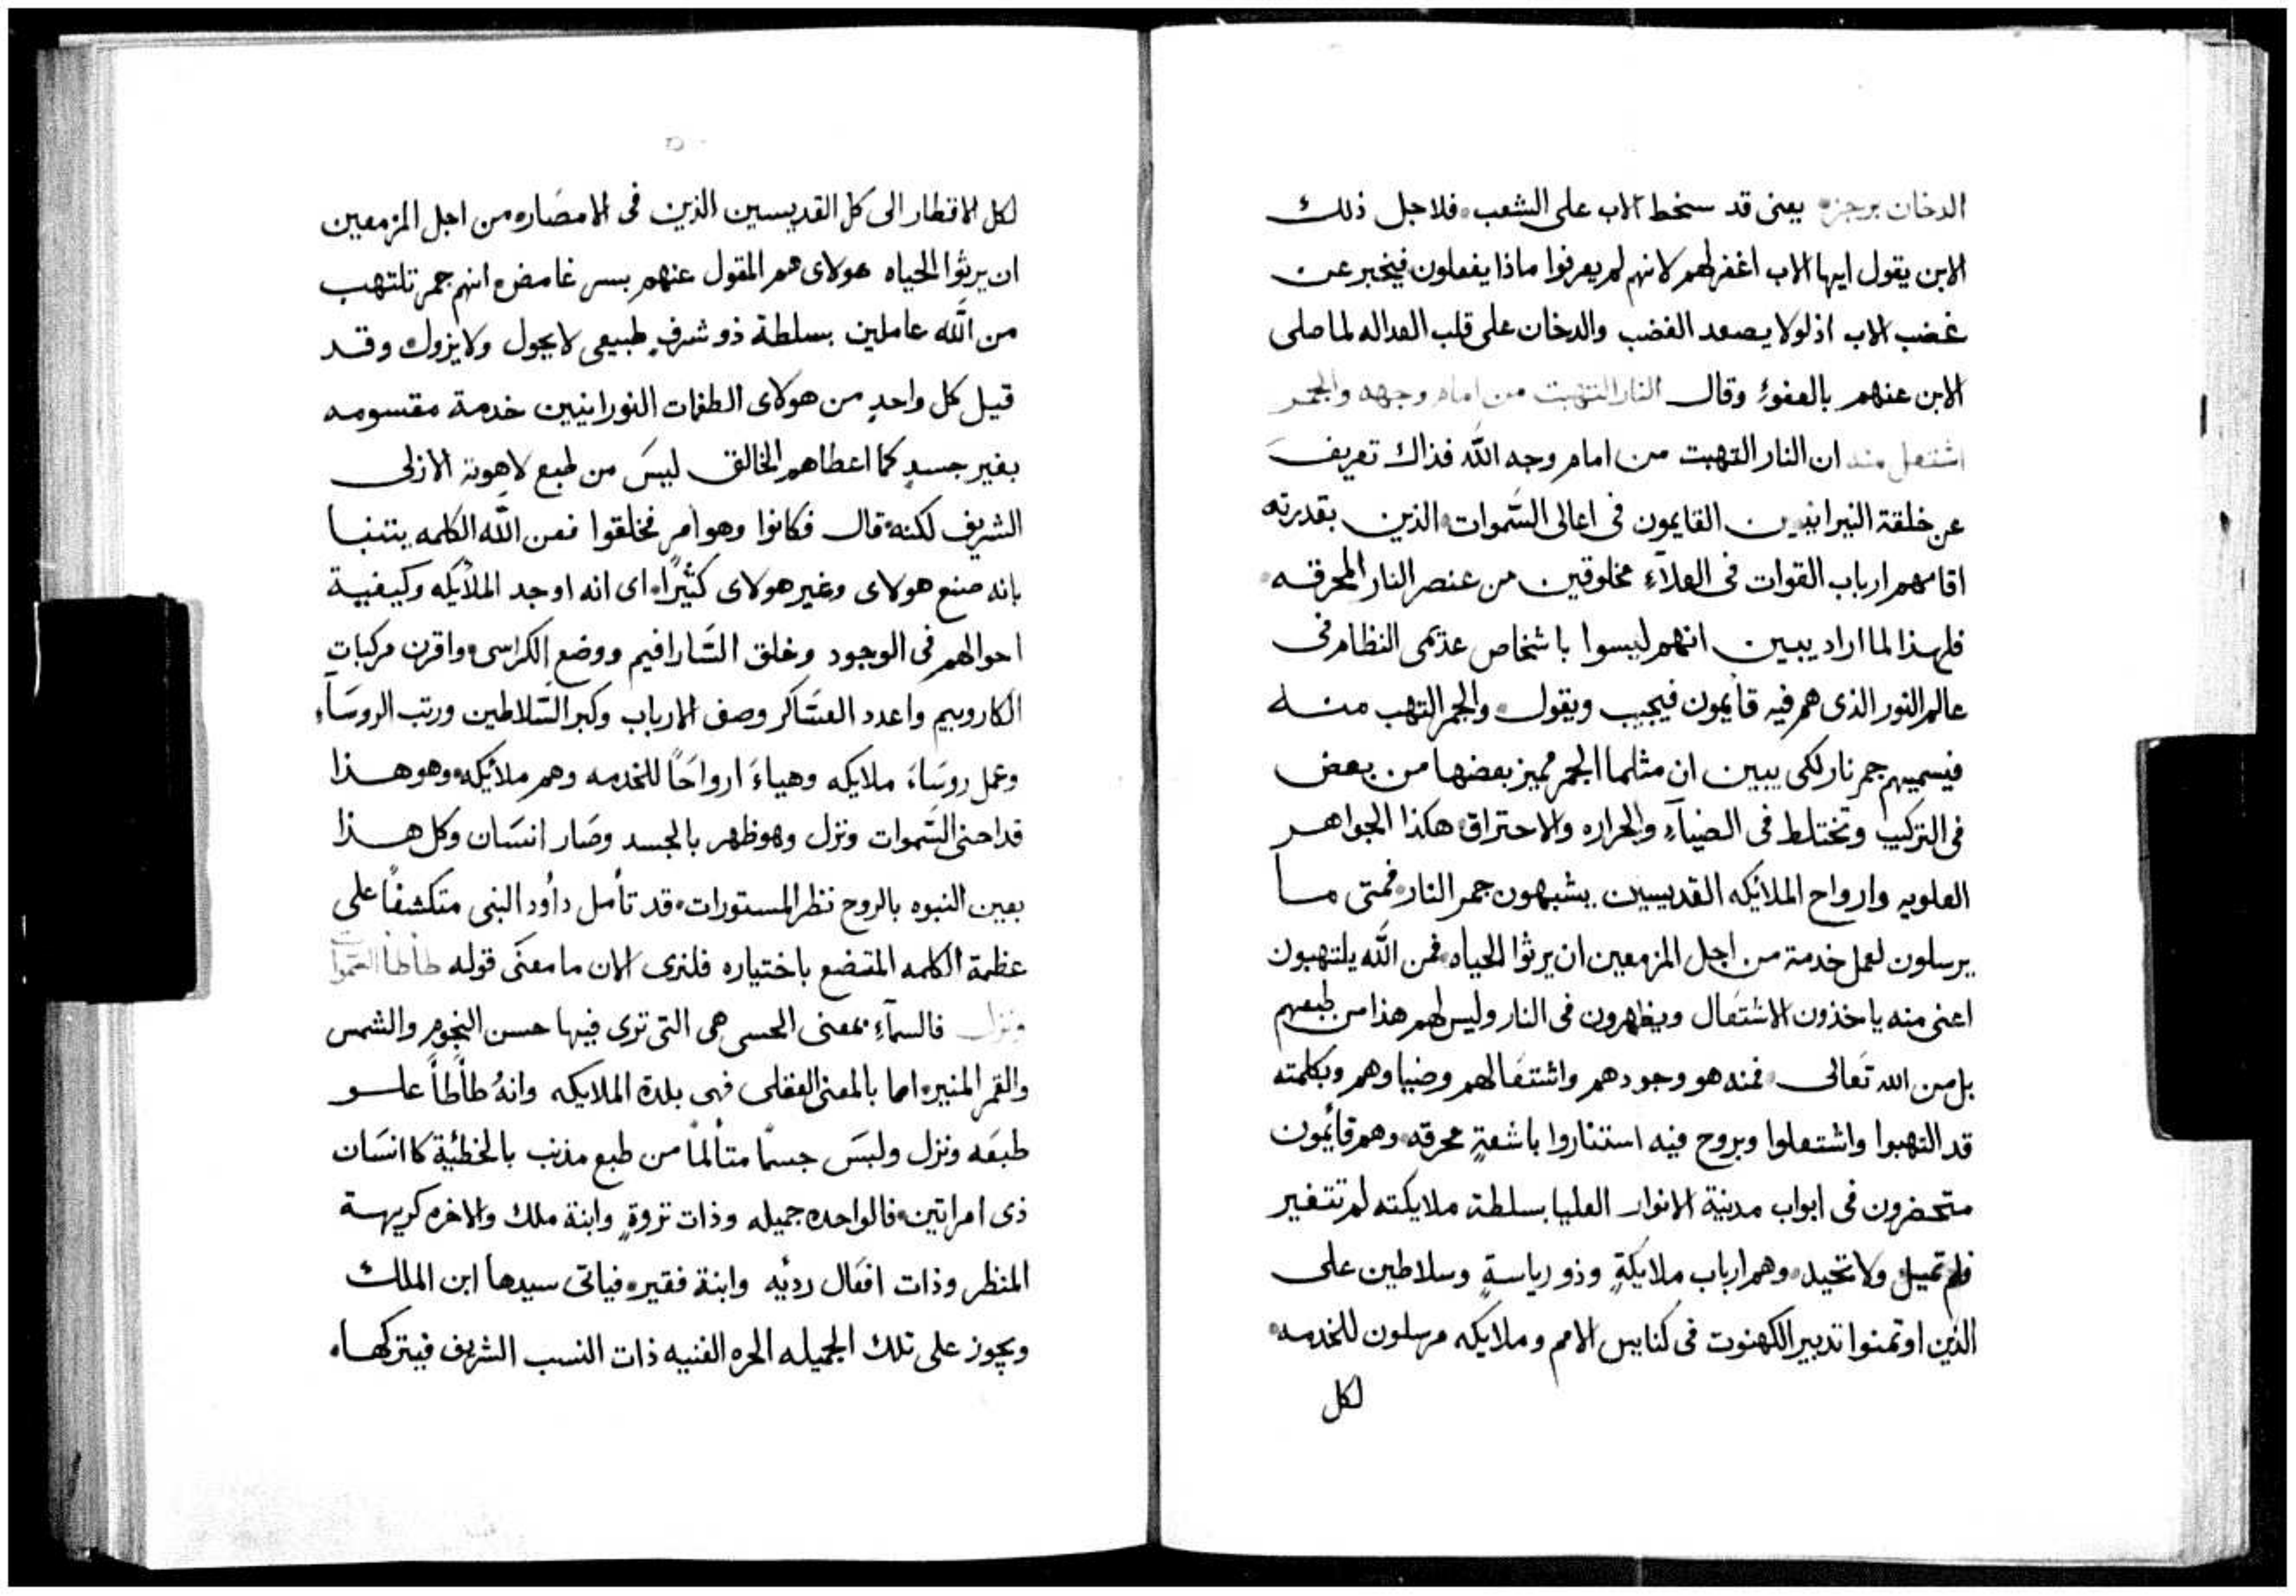 الدخان برجزه يعنى قد سخط الاب على الشعب. فلاجل ذلك
الابن يقول ايها الاب اغفر لهم لانهم لم يعرفوا ماذا يفعلون فيخبر عن
غضب الاب اذ لولا يصعد الغضب والدخان على قلب العداله لما صلى
الابن عنهم بالعفو، وقال النار التهبت من امام وجهه والجمر
اشتعل منه ان النار التهبت من امام وجه الله فذاك تعريف
عن خلقة النيرانيين القايمون فى اعالى السَّموات الذين بقدرته
اقامهم ارباب القوات فى العلآء مخلوقين من عنصر النار المحرقه
فلهذا لما اراد يبين انهم ليسوا باشخاص عديمى النظام فى
عالم النور الذى هم فيه قايمون فيجيب ويقول والجمر التهب منه
فيسميهم جمر نار لكى يبين ان مثلما الجمر مميز بعضها من بعض
فى التركيب وتختلط فى الضيآء والحراره والاحتراق هكذا الجواهر
العلويه وارواح الملائيكه القديسين يشبهون جمر النار فمتى ما
يرسلون لعمل خدمة من اجل المزمعين ان يرثوا الحياه فمن الله يلتهبون
اعنى منه ياخذون الاشتعال ويظهرون فى النار وليس لهم هذا من طبعهم
بل من الله تعالى فمنه هو وجودهم واشتعالهم وضياوهم وبكلمته
قد التهبوا واشتعلوا وبروح فيه استناروا باشعةٍ محرقه وهم قائمون
متحضرون فى ابواب مدينة الانوار العليا بسلطة ملايكته لم تتغير
فلم تميل ولا تحيد وهم ارباب ملايكةٍ وذو رياسةٍ وسلاطين على
الذين اوتمنوا تدبير الكهنوت فى كنايس الامم وملايكه مرسلون للخدمه
لكل
لكل الاقطار الى كل القديسين الذين فى الامصَاره من اجل المزمعين
ان يرثوا الحياه هولاى هم المقول عنهم بسر غامض انهم جمر تلتهب
من الله عاملين بسلطة ذو شرفٍ طبيعى لا يحول ولا يزول وقد
قيل كل واحدٍ من هولاى الطغمات النورانيين خدمة مقسومه
بغير جسدٍ كما اعطاهم الخالق ليسَ من طبع لاهوته الازلى
الشريف لكنه قال فكانوا وهو امر فخلقوا فعن الله الكلمه يتنبا
بانه صنع هولاى وغير هولاى كثيرًا. اى انه اوجد الملائكه وكيفية
احوالهم فى الوجود وخلق السَّارافيم ووضع الكراسى واقرن مركبات
الكاروبيم واعدد العسَاكر وصف الارباب وكبر السَّلاطين ورتب الروسَآء
وعمل روسَاءَ ملايكه وهياءَ ارواحًا للخدمه وهم ملائيكه وهو هذا
قد احنى السَّموات ونزل وهو ظهر بالجسد وصَار انسَان وكل هذا
بعين النبوه بالروح نظر المستورات. قد تأمل دأود النبى متكشفًا على
عظمة الكلمه المتضع باختياره فلنرى الان ما معنَى قوله طأطأ السَّموات
ونزل فالسمآء بمعنى الحسى هى التى ترى فيها حسن النجوم والشمس
والقمر المنيره اما بالمعنى العقلى فهى بلدة الملايكه وانهُ طأطأ علو
طبعَه ونزل ولبسَ جسمًا متألمًا من طبع مذنب بالخطئية كاانسَان
ذى امراتين فالواحده جميله وذات ثروةٍ وابنة ملك والاخره كريهة
المنظر وذات افعَال رديَه وابنة فقيره فياتى سيدها ابن الملك
ويجوز على تلك الجميله الحره الغنيه ذات النسب الشريف فيتركها.